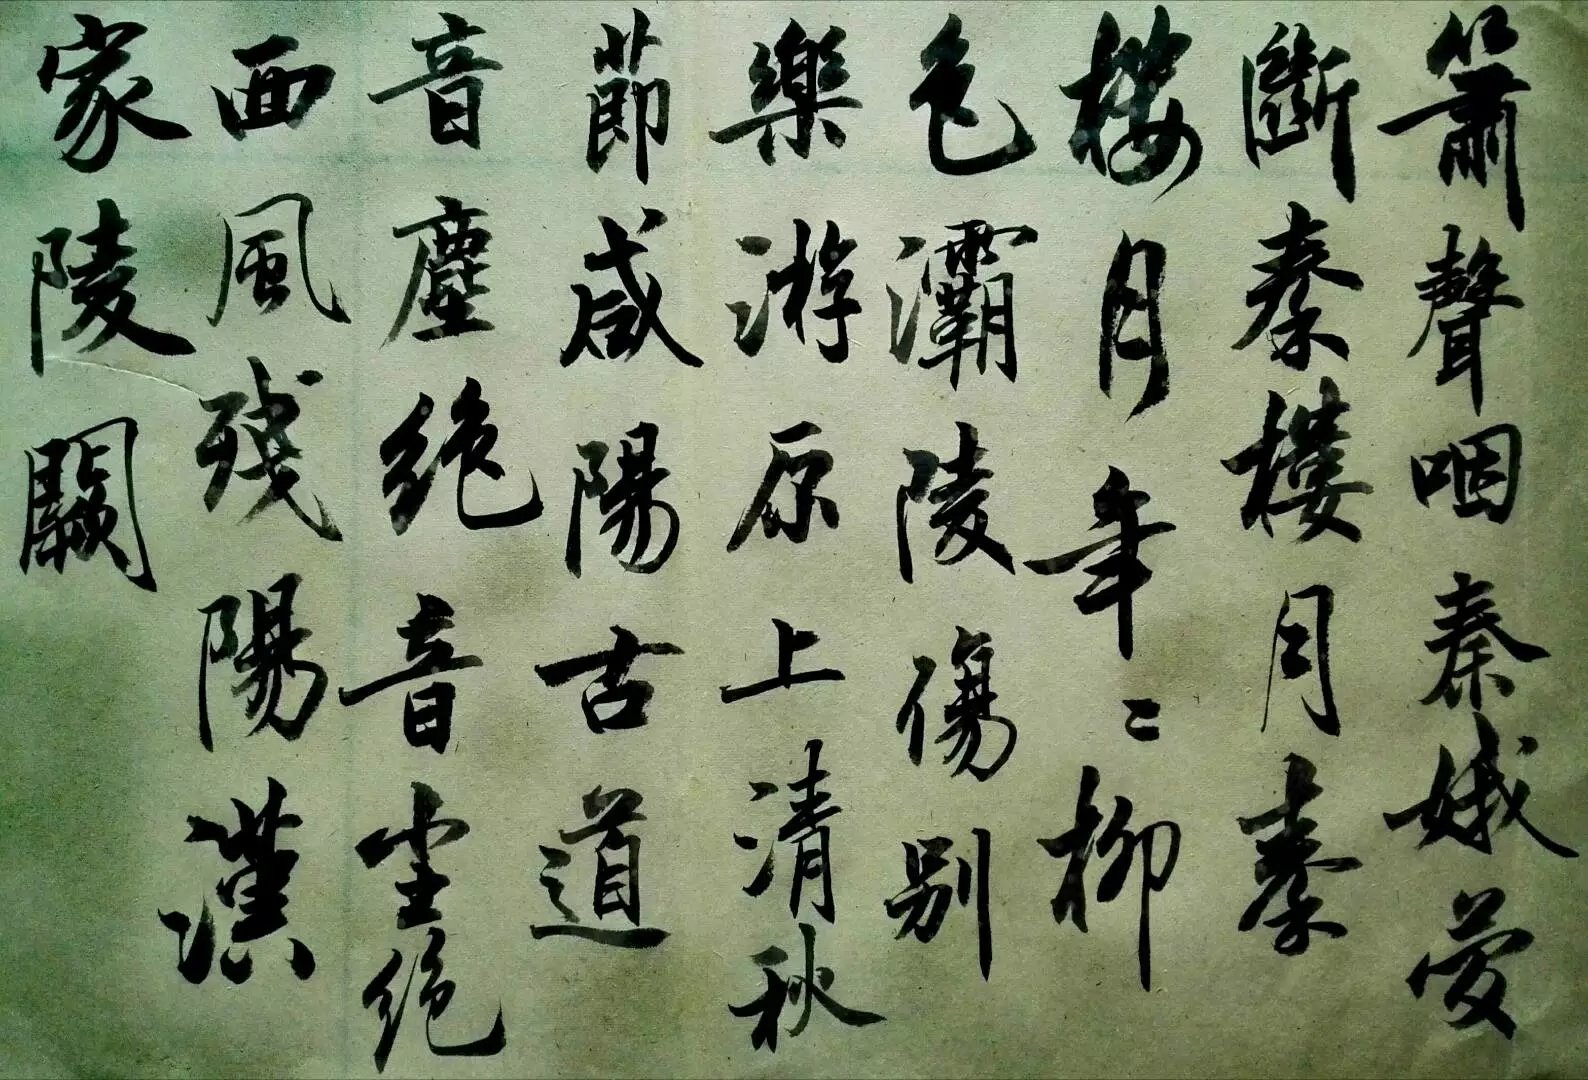 簫聲咽秦娥夢
斷秦樓月秦
樓月年二柳
色灞陵傷别
樂游原上清秋
節咸陽古道
音塵绝音尘绝
面風残陽漢
家陵闕